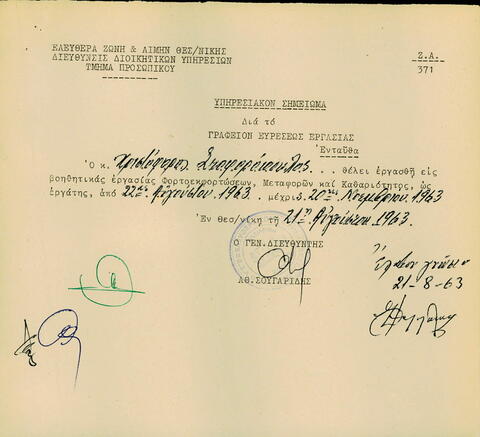 ΕΛΕΥΘΕΡΑ ΖΩΝΗ & ΛΙΜΗΝ ΘΕΣ/ΝΙΚΗΣ
ΔΙΕΥΘΥΝΣΙΣ ΔΙΟΙΚΗΤΙΚΩΝ ΥΠΗΡΕΣΙΩΝ
ΤΜΗΜΑ ΠΡΟΣΩΠΙΚΟΥ
Ζ.Α.
371
ΥΠΗΡΕΣΙΑΚΟΝ ΣΗΜΕΙΩΜΑ
Διά τό
ΓΡΑΦΕΙΟΝ ΕΥΡΕΣΕΩΣ ΕΡΓΑΣΙΑΣ
Ἐνταῦθα
Ὁ κ. Χριστόφορος . . θέλει ἐργασθῆ εἰς
βοηθητικάς ἐργασίας Φορτοεκφορτώσεων, Μεταφορῶν καί Καθαριότητος, ὡς
ἐργάτης, ἀπό 22ας Αὐγούστου 1963 .. μέχρις 20ης Νοεμβρίου 1963
Ἐν Θεσ/νίκη τῇ 21ῃ Αὐγούστου 1963
Ο ΓΕΝ.ΔΙΕΥΘΥΝΤΗΣ
ΑΘ.ΣΟΥΓΑΡΙΔΗΣ
Ἔλαβον γνῶσιν
21-8-63